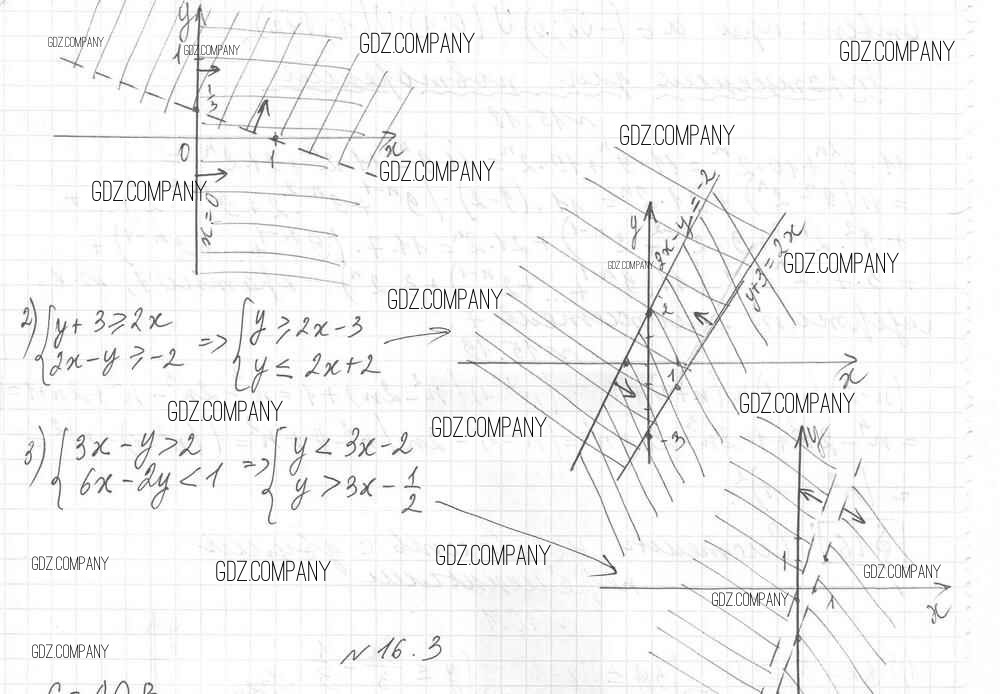 y
GDZ.COMPANY
GDZ.COMPANY
GDZ.COMPANY
GDZ.COMPANY
1
1/3
GDZ.COMPANY
0
1
x
GDZ.COMPANY
GDZ.COMPANY
x=0
y
2x-y=-2
y+3=2x
GDZ.COMPANY
GDZ.COMPANY
GDZ.COMPANY
2
2) { y+3⩾2x => { y⩾2x-3
2x-y⩾-2 y≤2x+2
1
x
-3
GDZ.COMPANY
GDZ.COMPANY
GDZ.COMPANY
3) { 3x-y>2 => { y<3x-2
6x-2y<1 y>3x-1/2
y
GDZ.COMPANY
GDZ.COMPANY
GDZ.COMPANY
GDZ.COMPANY
1
1
GDZ.COMPANY
x
GDZ.COMPANY
N16.3